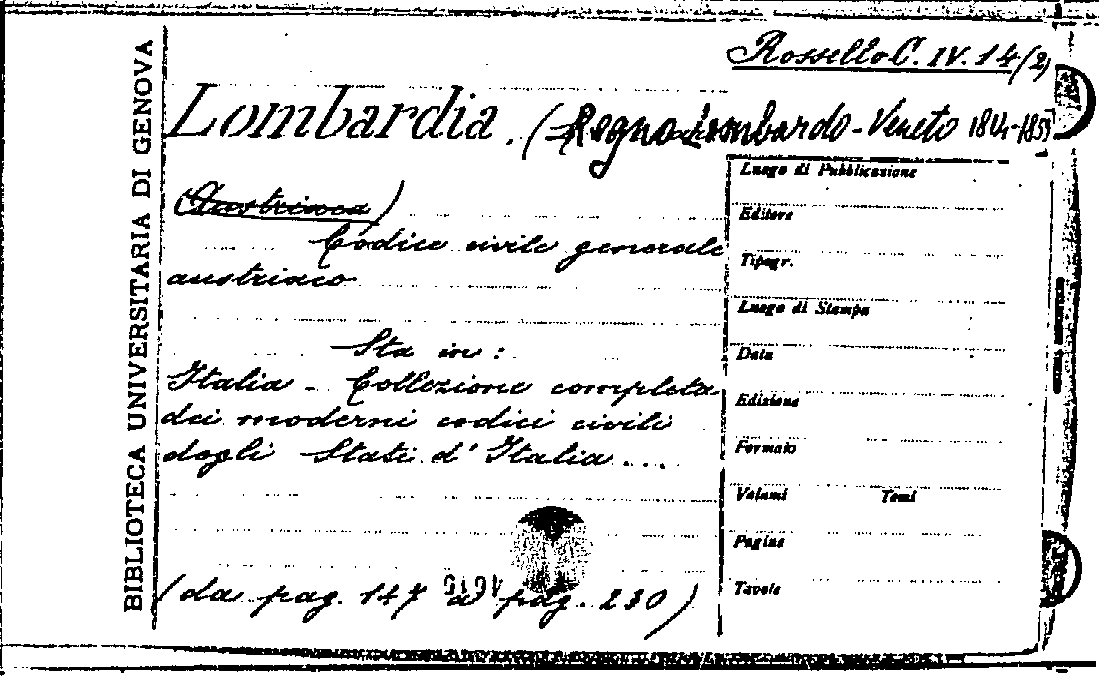 Rossello C. IV. 14/(2)
BIBLIOTECA UNIVERSITARIA DI GENOVA
Lombardia. (Regno Lombardo-Veneto 1814-1859
(Austriaca)
Codice civile generale
austriaco
Sta in:
Italia - Collezione completa
dei moderni codici civili
degli Stati d'Italia ...
(da pag. 147 a pag. 230)
Luogo di Pubblicazione
Editore
Tipogr.
Luogo di Stampa
Data
Edizione
Formato
Volumi Tomi
Pagine
Tavole